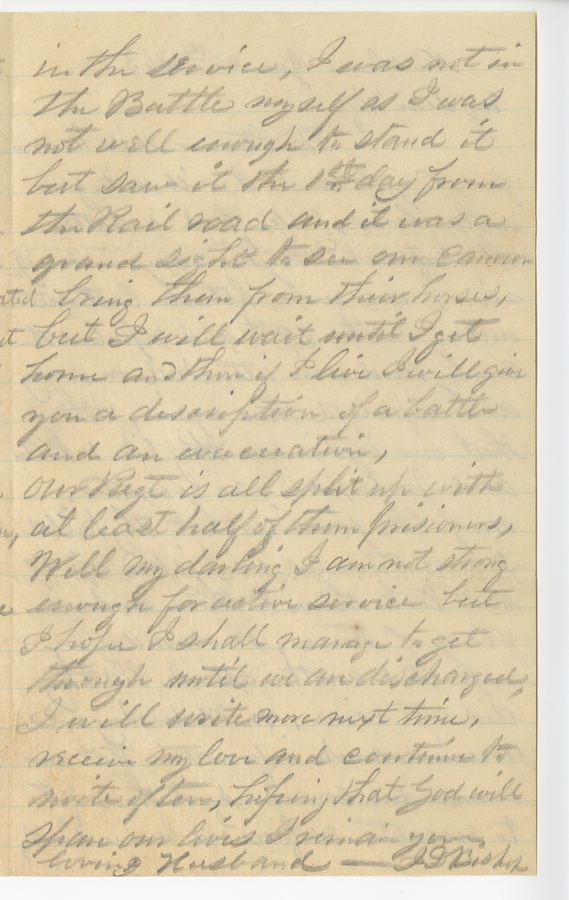 in the service, I was not in
the Battle myself as I was
not well enough to stand it
but saw it the 1st day from
the Rail road and it was a
grand sight to see our cannon
ated bring them from their horses,
ut but I will wait until I get
home and then if I live I will give
you a description of a battle
and an evacuation,
Our Regt is all split up with
at least half of them prisioners,
Well my darling I am not strong
enough for active service but
I hope I shall manage to get
through until we are discharged,
I will write more next time,
receive my love and continue to
write often, hoping that God will
Spare our lives I remain your
loving Husband — Bishop